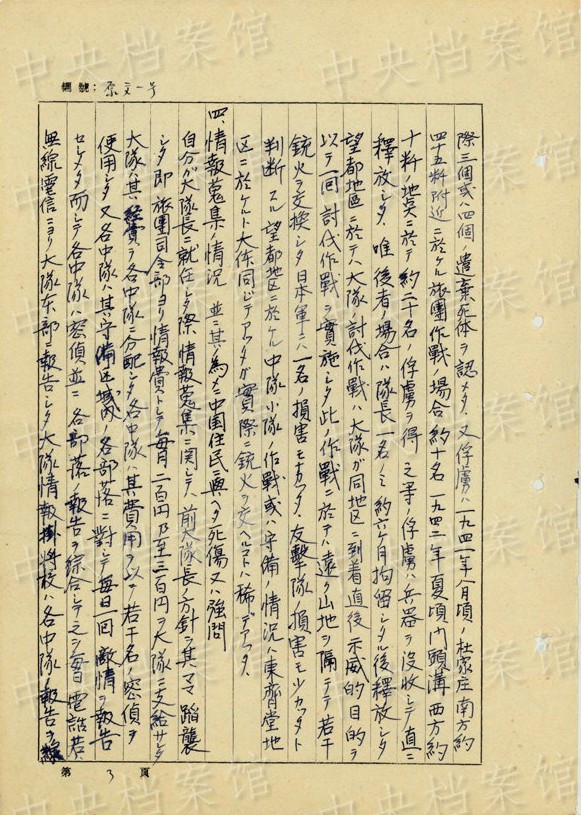 中央档案馆
編號：京文一号
際三個或ハ四個ノ遺棄死体ヲ認メタ。又俘虜ハ一九四一年八月頃ノ杜家庄南方約
四十五粁附近ニ於ケル旅團作戰ノ場合約十名一九四二年夏頃門頭溝西方約
十粁ノ地点ニ於テ約二十名ノ俘虜ヲ得之等ノ俘虜ハ兵器ヲ沒收シテ直ニ
釋放シタ。唯後者ノ場合ハ隊長一名ノミ約六ヶ月拘留シタル後釋放シタ
望都地区ニ於テハ大隊ノ討伐作戰ハ大隊ガ同地区ニ到着直後示威的目的ヲ
以テ一回討伐作戰ヲ實施シタ此ノ作戰ニ於テハ遠ク山地ヲ隔テテ若干
銃火ヲ交換シタ日本軍ニハ一名ノ損害モナカッタ。友擊隊ノ損害モ少カッタト
判断スル望都地区ニ於ケル中隊小隊ノ作戰或ハ守備ノ情況ハ東齊堂地
区ニ於ケルト大体同ジデアッタガ實際ニ銃火ヲ交ヘタコトハ稀デアッタ。
四、情報蒐集ノ情況並ニ其ノ為メニ中国住民ニ與ヘタ死傷又ハ強問
自分ガ大隊長ニ就任シタ際情報蒐集ニ関シテハ前大隊長ノ方針ヲ其ママ踏襲
シタ即旅團司令部ヨリ情報費トシテ毎月二百円乃至三百円ヲ大隊ニ支給サレタ
大隊ハ其経費ヲ各中隊ニ分配シタ各中隊ハ其費用ヲ以テ若干名ノ密偵ヲ
使用シタ又各中隊ハ其守備区域內ノ各部落ニ對シテ毎日一回敵情ヲ報告
セシメタ而シテ各中隊ハ密偵並ニ各部落ノ報告ヲ綜合シテ之ヲ毎日電話若ハ
無線電信ニヨリ大隊本部ニ報告シタ大隊情報掛將校ハ各中隊ノ報告ヲ綜
第3頁